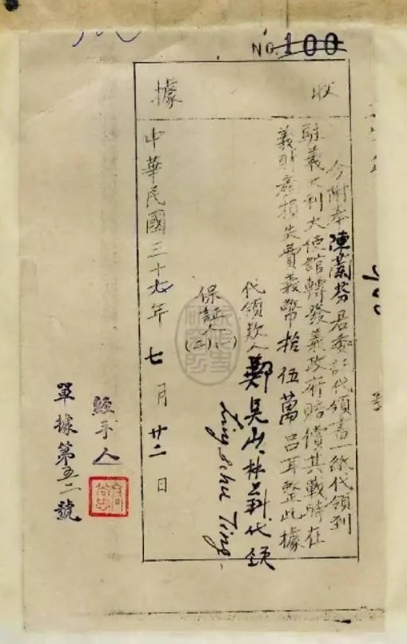 NO. 100
收據
今附奉陳蘭芬君委託代領書一紙代領到
駐義大利大使館轉發義政府賠償其戰時在
義財產損失費義幣拾伍萬呂耳整此據
代領欵人 鄭昊山 林上科代領
Ting Schu Ting
保証人(一)(二)
中華民國三十七年七月廿二日
經手人
單據第五二號